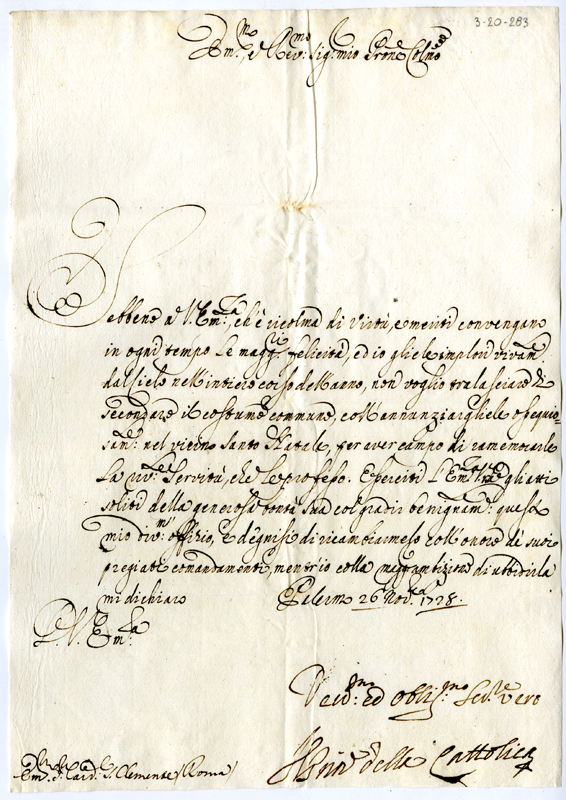 3-20-283
Em:mo e Rev:mo Sig:r mio Prone Colmo
Sebbene a V. Em:za ch'è ricolma di Virtù, e meriti convengano
in ogni tempo le magg:ri felicità, ed io gliele implori vivam:te
dal Cielo nell'intiero corso dell'anno, non voglio tralasciare di
secondare il costume commune, coll'annunziargliele ossequio=
sam: nel vicino Santo Natale, per aver campo di ramemorarle
la riv: Servitù, che le professo. Eserciti l'Em:za V:ra gli atti
soliti della generosa bontà sua col gradir benignam: questo
mio div:mo offizio, e degnisi di ricambiarmelo coll'onore de' suoi
pregiati comandamenti, mentr'io colla ambizione di ubbidirla
mi dichiaro Palermo 26 Nov: 1728.
D. V. Em:za
Dev:mo ed Obbli:mo Ser:re Vero
Il Prin: della Cattolica
Em: S: Card: S. Clemente (Roma)